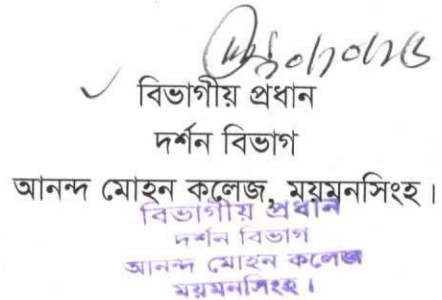 বিভাগীয় প্রধান
দর্শন বিভাগ
আনন্দ মোহন কলেজ, ময়মনসিংহ।
বিভাগীয় প্রধান
দর্শন বিভাগ
আনন্দ মোহন কলেজ
ময়মনসিংহ।